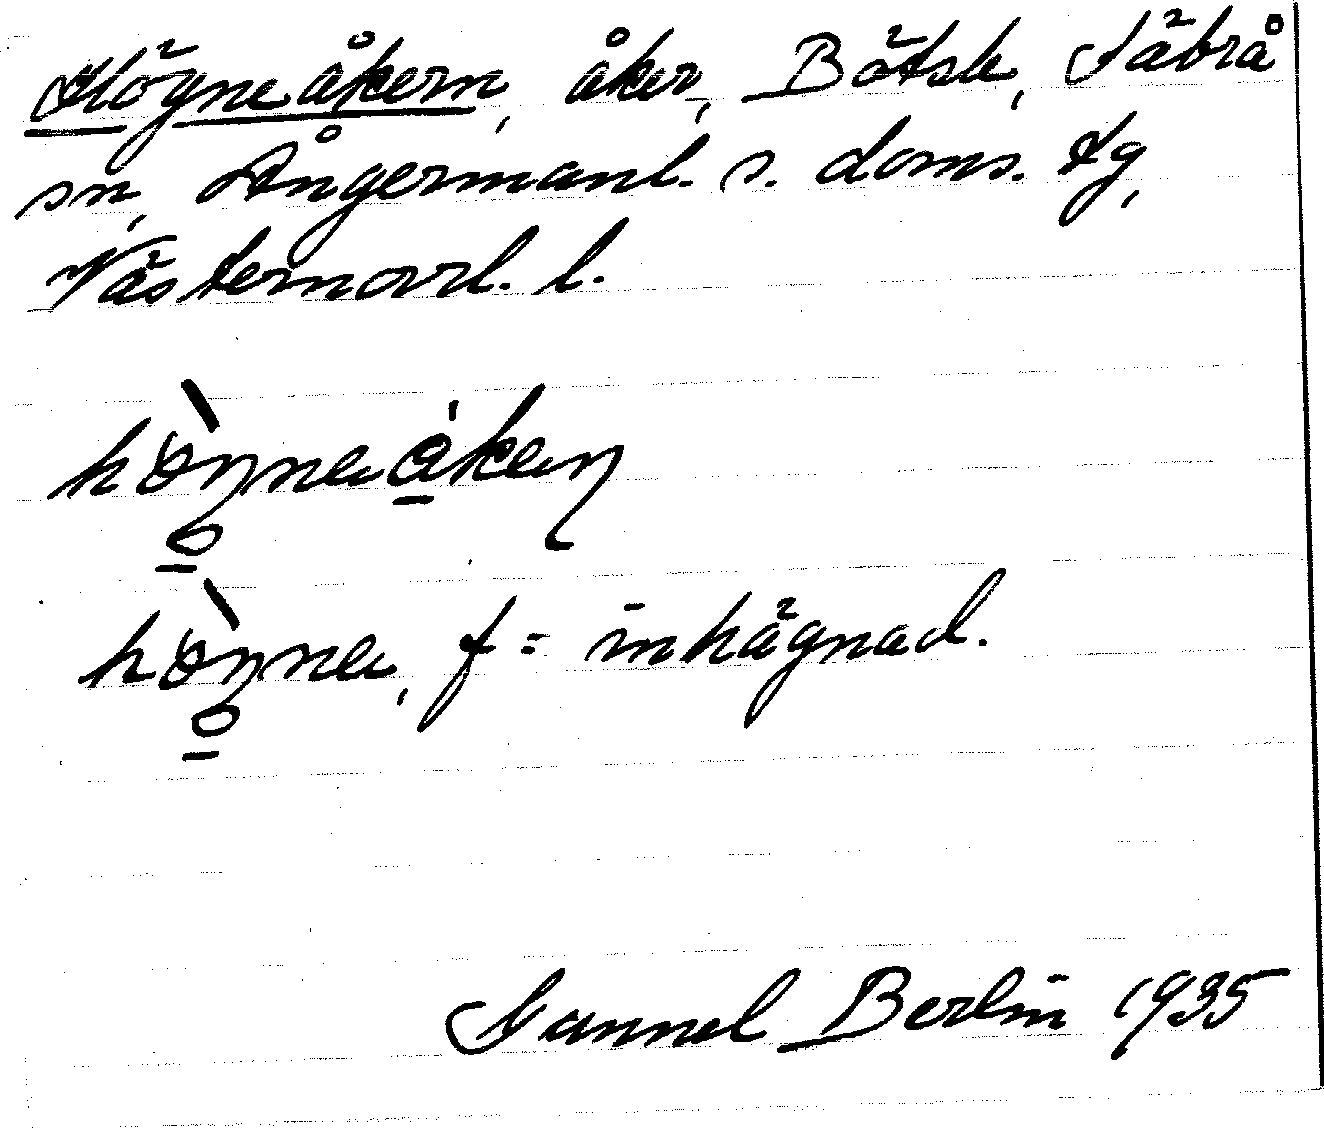 Högneåkern, åker, Bötsle, Säbrå
sn, Ångermanl. s. doms. tg,
Västernorrl. l.
hö̀ŋneåkeɳ
hö̀ŋne, f = inhägnad.
Nannel Berlin 1935